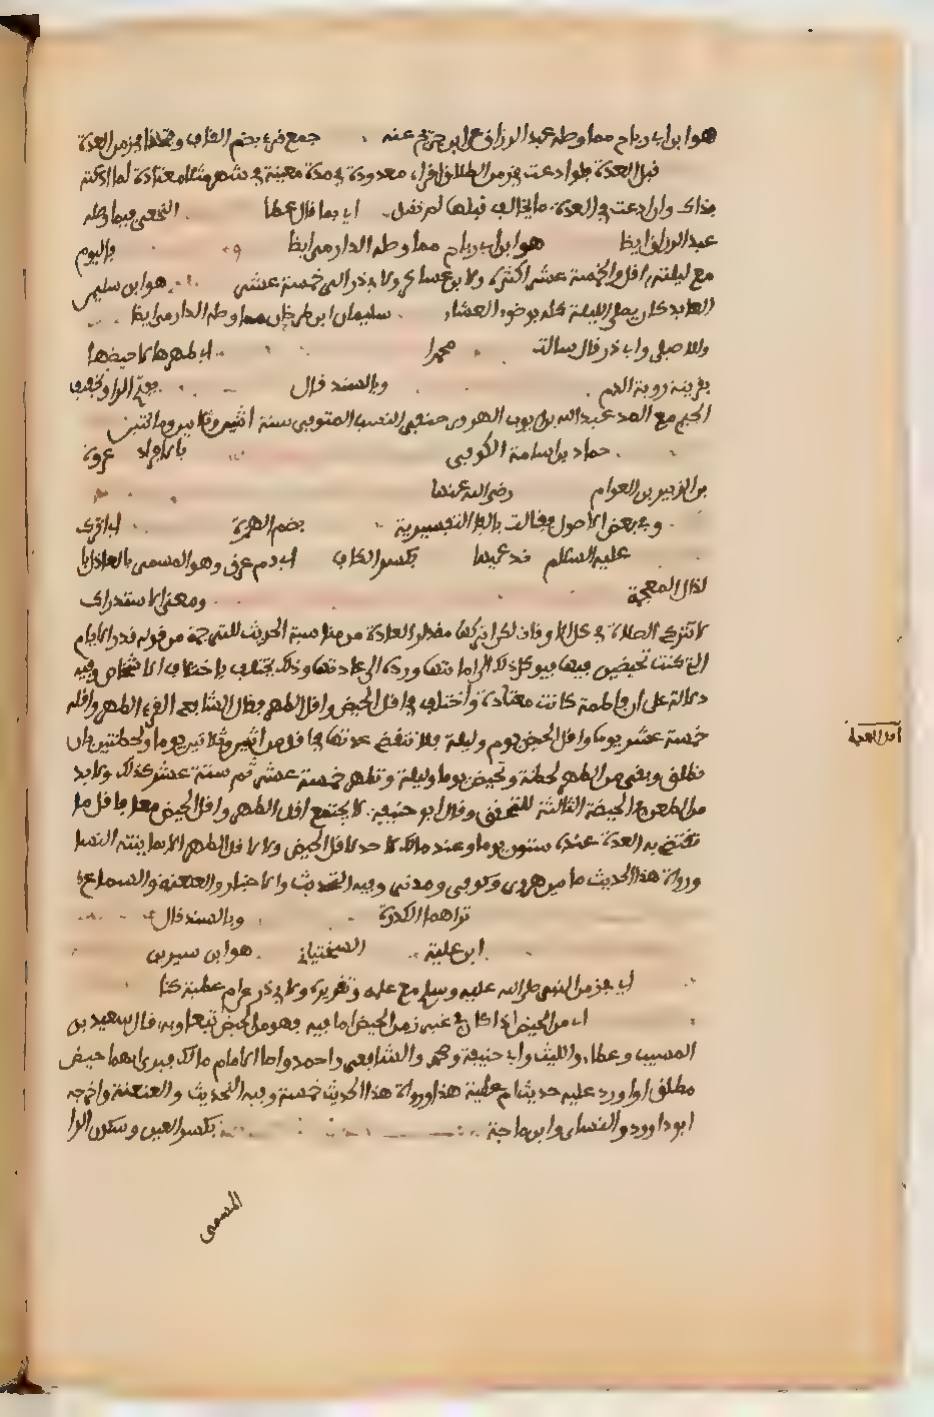 هو ابن ابي رباح مما وصله عبد الرزاق عن ابن جريج عنه جمع قرء بضم القاف وفتحها في زمن العدة
قبل العدة فلو ادعت في زمن الطلاق اقراء معدودة في مدة معينة في شهر مثلا معتادة لما ادعته
فذاك وان ادعت في العدة ما يخالف قبلها لم تقبل اي بما قال عطا النخعي فيما وصله
عبد الرزاق ايضا هو ابن ابي رباح مما وصله الدارمي ايضا فاليوم
مع ليلته اقل والخمسة عشر اكثره ولابن عساكر ولابي ذر الى خمسة عشر هو ابن سليمن
العابد كان يصلي الليلة كله بوضوء العشاء سليمان ابن طرخان مما وصله الدارمي ايضا
وللاصيلي وابي ذر قال سالت محمدا اي طهرها لا حيضها
بقرينة روية الدم وبالسند قال بفتح الراء وتخفيف
الجيم مع المد عبد الله بن ايوب الهروي حنفي النسب المتوفى سنة اثنين وثلاثين ومائتين
حماد بن اسامة الكوفي بالافراد عروة
بن الزبير بن العوام رضي الله عنها
وفي بعض الاصول فقالت بالفا التفسيرية بضم الهمزة
عليه السلام بكسر الكاف اي دم عرق وهو المسمى بالعاذل با
لذال المعجمة ومعنى الاستدراك
لا تتركي الصلاة في كل الاوقات لكن اتركيها مقدار العادة من مناسبة الحديث للترجمة من قوله قدر الايام
التي كنت تحيضين فيها فيوكل ذلك الى امانتها ورده الى عادتها وذلك يختلف باختلاف الاشخاص وفيه
دلالة على ان فاطمة كانت معتادة واختلف في اقل الحيض واقل الطهر فقال الشافعي القرء الطهر واقله
خمسة عشر يوما واقل الحيض يوم وليلة فلا تنقضي عدتها في اقل من اثنين وثلاثين يوما ولحظتين بان
تطلق وبقي من الطهر لحظة وتحيض يوما وليلة وتطهر خمسة عشر ثم ستة عشر كذلك ولا بد
من الطعن في الحيضة الثالثة للتحقق وقال ابو حنيفة لا يجتمع اقل الطهر واقل الحيض معا فاقل ما
تنقضي به العدة عنده ستون يوما وعند مالك لا حد لاقل الحيض ولا لاقل الطهر الا بما بينته النسا
ورواة هذا الحديث ما بين هروي وكوفي ومدني وفيه التحديث والاخبار والعنعنة والسماع
تراهما الكدرة وبالسند قال
ابن علية السختياني هو ابن سيرين
اي في زمن النبي صلى الله عليه وسلم مع علمه وتقريره ولابي ذر عن ام عطية كنا
اي من الحيض اذا كان في غير زمن الحيض اما فيه فهو من الحيض تبعا وبه قال سعيد بن
المسيب وعطاء والليث وابي حنيفة ومحمد والشافعي واحمد واما الامام مالك فيرى انهما حيض
مطلقا واورد عليه حديث ام عطية هذا ورواة هذا الحديث خمسة وفيه التحديث والعنعنة واخرجه
ابو داوود والنساي وابن ماجة بكسر العين وسكون الرا
المسمى